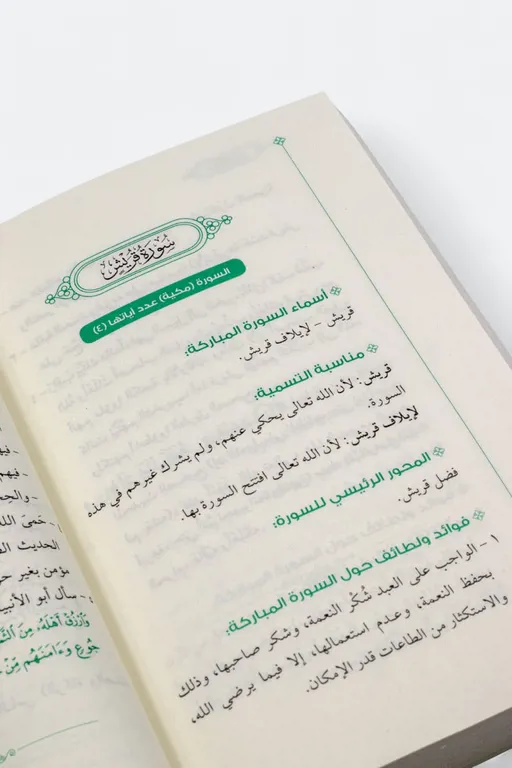 سُورَةُ قُرَيْشٍ
السورة (مكية) عدد آياتها (٤)
أسماء السورة المباركة:
قريش - لإيلاف قريش.
مناسبة التسمية:
قريش: لأن الله تعالى يحكي عنهم، ولم يشرك غيرهم في هذه
السورة.
لإيلاف قريش: لأن الله تعالى افتتح السورة بها.
المحور الرئيسي للسورة:
فضل قريش.
فوائد ولطائف حول السورة المباركة:
١ - الواجب على العبد شُكْر النعمة، وشكر صاحبها، وذلك
بحفظ النعمة، وعدم استعمالها، إلا فيما يرضي الله،
والاستكثار من الطاعات قدر الإمكان.
الحديث
مؤمن بغير
- سأل أبو
وَارْزُقْ أَهْلَهُ مِنَ
جُوعٍ وَءَامَنَهُم مِّنْ